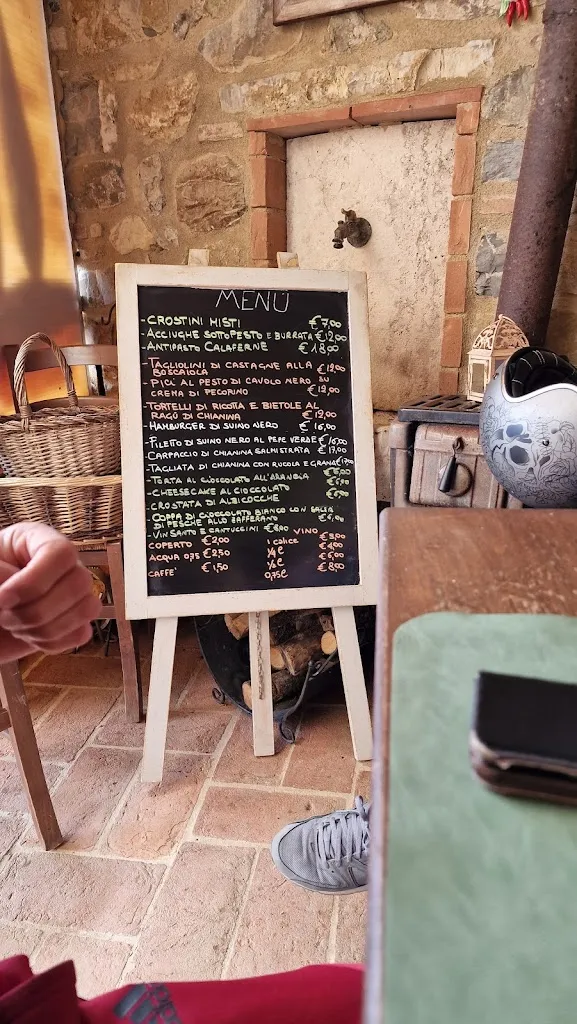 MENÙ
- CROSTINI MISTI €7,00
- ACCIUGHE SOTTOPESTO E BURRATA €12,00
- ANTIPASTO CALAFERNE €18,00
- TAGLIOLINI DI CASTAGNE ALLA BOSCAIOLA €12,00
- PICI AL PESTO DI CAVOLO NERO SU
CREMA DI PECORINO €12,00
- TORTELLI DI RICOTTA E BIETOLE AL
RAGÙ DI CHIANINA €12,00
- HAMBURGER DI SUINO NERO €16,00
- FILETTO DI SUINO NERO AL PEPE VERDE €16,00
- CARPACCIO DI CHIANINA SALMISTRATA €17,00
- TAGLIATA DI CHIANINA CON RUCOLA E GRANA €17,00
- TORTA AL CIOCCOLATO ALL'ARANCIA
- CHEESECAKE AL CIOCCOLATO
CROSTATA DI ALBICOCCHE
COPPA DI CIOCCOLATO BIANCO CON SALSA
DI PESCHE ALLO ZAFFERANO €6,00
- VIN SANTO E CANTUCCINI €8,00
VINO
COPERTO €2,00 1 CALICE €3,00
ACQUA 0,75 €2,50 1/4 € €4,00
1/2 € €6,00
CAFFE' €1,50 0,75€ €8,00